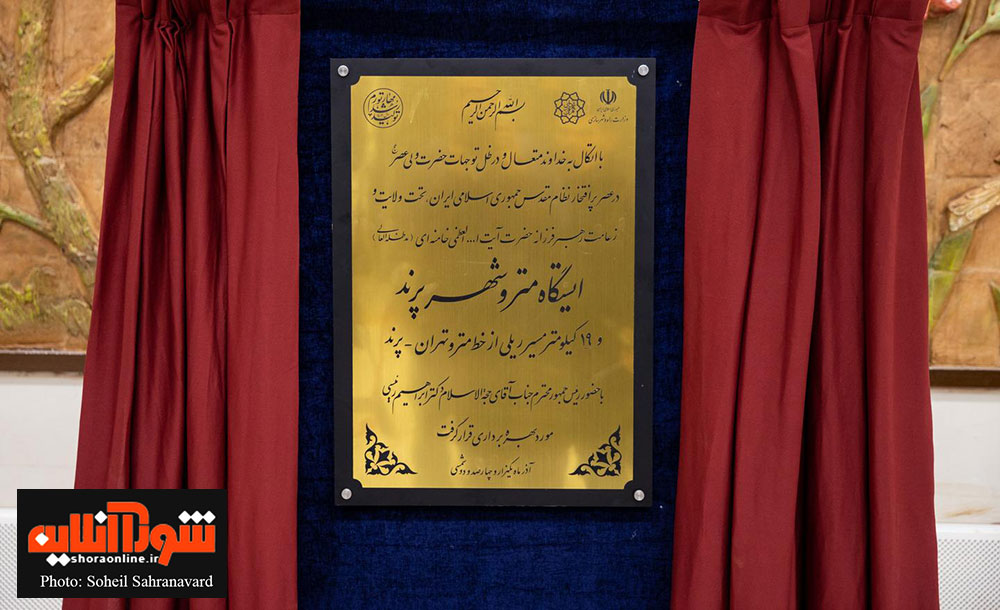 بسم الله الرحمن الرحیم
جمهوری اسلامی ایران
وزارت راه و شهرسازی
با اتکال به خداوند متعال و در ظل توجهات حضرت ولی عصر
در عصر پر افتخار نظام مقدس جمهوری اسلامی ایران، تحت ولایت و
زعامت رهبر فرزانه حضرت آیت ا... العظمی خامنه ای (مدظله العالی)
ایستگاه مترو شهر پرند
و ۱۹ کیلومتر مسیر ریلی از خط مترو تهران - پرند
با حضور رییس جمهور محترم جناب آقای حجةالاسلام دکتر ابراهیم رئیسی
مورد بهره برداری قرار گرفت
آذر ماه یکهزار و چهارصد و دو شمسی
شورا آنلاین
shoraonline.ir
Photo: Soheil Sahranavard